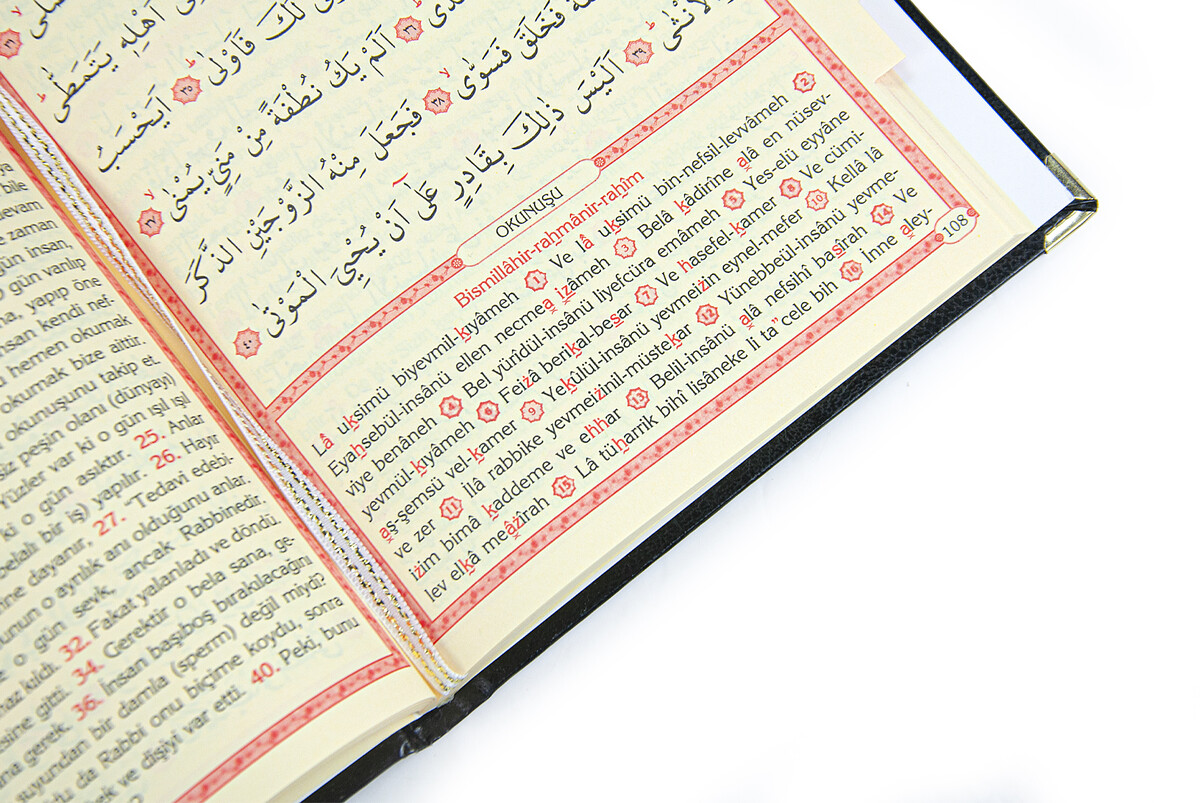 bile
zaman
gün insan,
o gün varılıp
yapıp öne
kendi nef-
hemen okumak
okumak bize aittir.
okunuşunu takip et.
peşin olanı (dünyayı)
Yüzler var ki o gün ışıl ışıl
ki o gün asıktır. 25. Anlar
belalı bir iş) yapılır. 26. Hayır
dayanır, 27. "Tedavi edebi-
o ayrılık anı olduğunu anlar.
o gün sevk, ancak Rabbinedir.
kıldı. 32. Fakat yalanladı ve döndü.
gitti. 34. Gerektir o bela sana, ge-
gerek. 36. İnsan başıboş bırakılacağını
suyundan bir damla (sperm) değil miydi?
da Rabbi onu biçime koydu, sonra
ve dişiyi var etti. 40. Peki, bunu
اَهْلِه۪ يَتَمَطّٰى
لَكَ فَاَوْلٰى ﴿٣٥﴾ اَيَحْسَبُ
﴿٣٦﴾ اَلَمْ يَكُ نُطْفَةً مِنْ مَنِيٍّ يُمْنٰى ﴿٣٧﴾
فَخَلَقَ فَسَوّٰى ﴿٣٨﴾ فَجَعَلَ مِنْهُ الزَّوْجَيْنِ الذَّكَرَ
وَالْاُنْثٰى ﴿٣٩﴾ اَلَيْسَ ذٰلِكَ بِقَادِرٍ عَلٰٓى اَنْ يُحْيِيَ الْمَوْتٰى ﴿٤٠﴾
OKUNUŞU
Bismillâhir-rahmânir-rahîm
Lâ uksimü biyevmil-kıyâmeh 1 Ve lâ uksimü bin-nefsil-levvâmeh 2
Eyahsebül-insânü ellen necmea izâmeh 3 Belâ kâdirîne alâ en nüsev-
viye benâneh 4 Bel yürîdül-insânü liyefcüra emâmeh 5 Yes-elü eyyâne
yevmül-kıyâmeh 6 Feiżâ berikal-besar 7 Ve hasefel-kamer 8 Ve cümi-
aş-şemsü vel-kamer 9 Yekûlül-insânü yevmeiżin eynel-mefer 10 Kellâ lâ
ve zer 11 İlâ rabbike yevmeiżinil-müstekar 12 Yünebbeül-insânü yevme-
iżim bimâ kaddeme ve ehhar 13 Belil-insânü alâ nefsihî basîrah 14 Ve
lev elkâ meâżîrah 15 Lâ tüharrik bihî lisâneke li ta"cele bih 16 İnne aley-
108